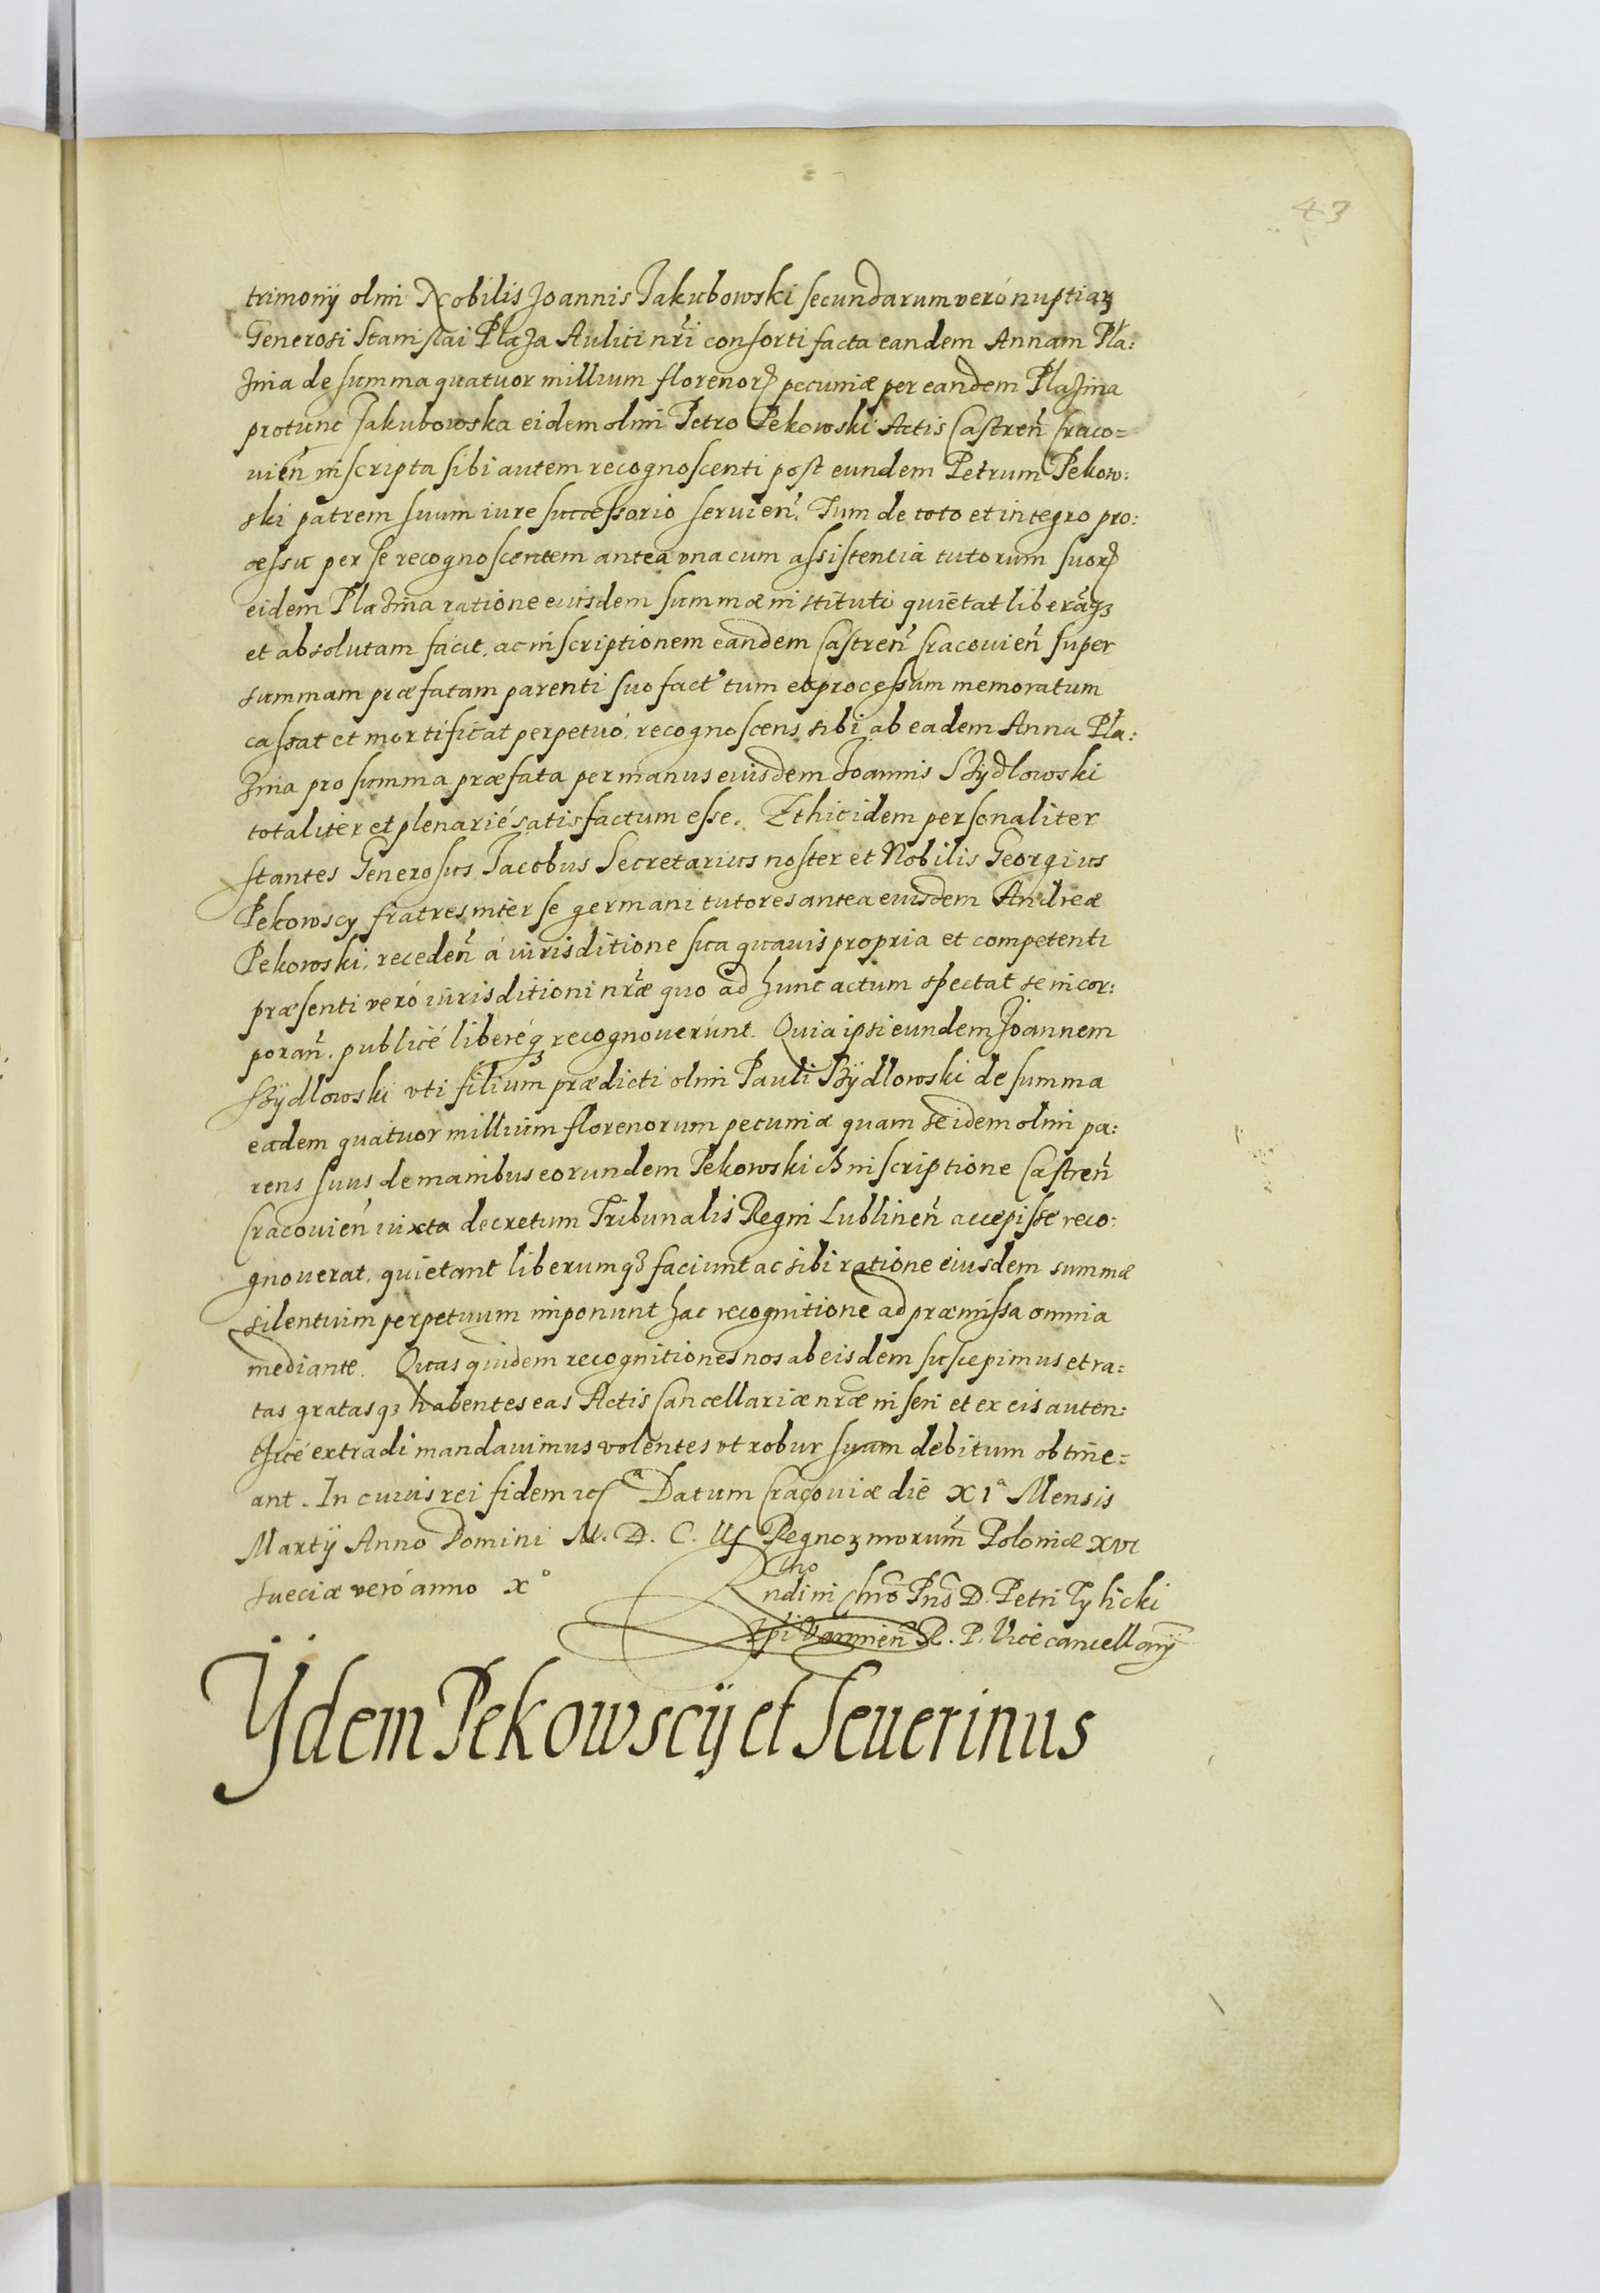 43
trimonÿ olim Nobilis Joannis Jakubowski secundarum veró nuptiaꝝ
Generosi Stanislai Plaza Aulici nr̃i consorti facta eandem Annam Pla:
zina de summa quatuor millium florenorꝝ pecuniæ per eandem Plazina
protunc Jakubowska eidem olim Petro Pekowski Actis Castren̄ Craco=
uien̄ inscripta sibi autem recognoscenti post eundem Petrum Pekow:
ski patrem suum iure successorio seruien̄. Tum de toto et integro pro:
cessu per se recognoscentem antea vna cum assistentia tutorum suorꝝ
eidem Plazina ratione eiusdem summæ instituto quietat liberãqꝫ
et absolutam facit, ac inscriptionem eandem Castren̄ Cracouien̄ super
summam præfatam parenti suo fact' tum et processum memoratum
cassat et mortificat perpetuó, recognoscens sibi ab eadem Anna Pla:
zina pro summa præfata per manus eiusdem Joannis Szÿdlowski
totaliter et plenarié satisfactum esse. Et hic idem personaliter
stantes Generosus Jacobus Secretarius noster et Nobilis Georgius
Pekowscy fratres inter se germani tutores antea eiusdem Andreæ
Pekowski, receden̄ á iurisditione sua quauis propria et competenti
præsenti veró iurisditioni nr̃æ quo ad hunc actum spectat se incor:
poran̄. publicé liberéqꝫ recognouerunt. Quia ipsi eundem Joannem
Szÿdlowski vti filium prædicti olim Pauli Szÿdlowski de summa
eadem quatuor millium florenorum pecuniæ quam se idem olim pa:
rens suus de manibus eorundem Pekowski ex inscriptione Castren̄
Cracouien̄ iuxta decretum Tribunalis Regni Lublinen̄ accepisse reco:
gnouerat, quietant liberumqꝫ faciunt ac sibi ratione eiusdem summæ
silentium perpetuum imponunt hac recognitione ad præmissa omnia
mediante. Quas quidem recognitiones nos ab eisdem suscepimus et ra:
tas gratasqꝫ habentes eas Actis Cancellariæ nr̃æ inseri et ex eis auten:
thicé extradi mandauimus volentes vt robur suum debitum obtine=
ant. In cuius rei fidem Datum Cracouiæ die XIa Mensis
Martÿ Anno Domini M. D. C. IIII Regnoꝝ nrorum̄ Poloniæ XVI
Sueciæ veró anno Xo
Rndi in Chro Pris D. Petri Tylicki
Epi Varmien̄ R. P. Vicecancellarÿ
Ÿdem Pekowscÿ et Seuerinus